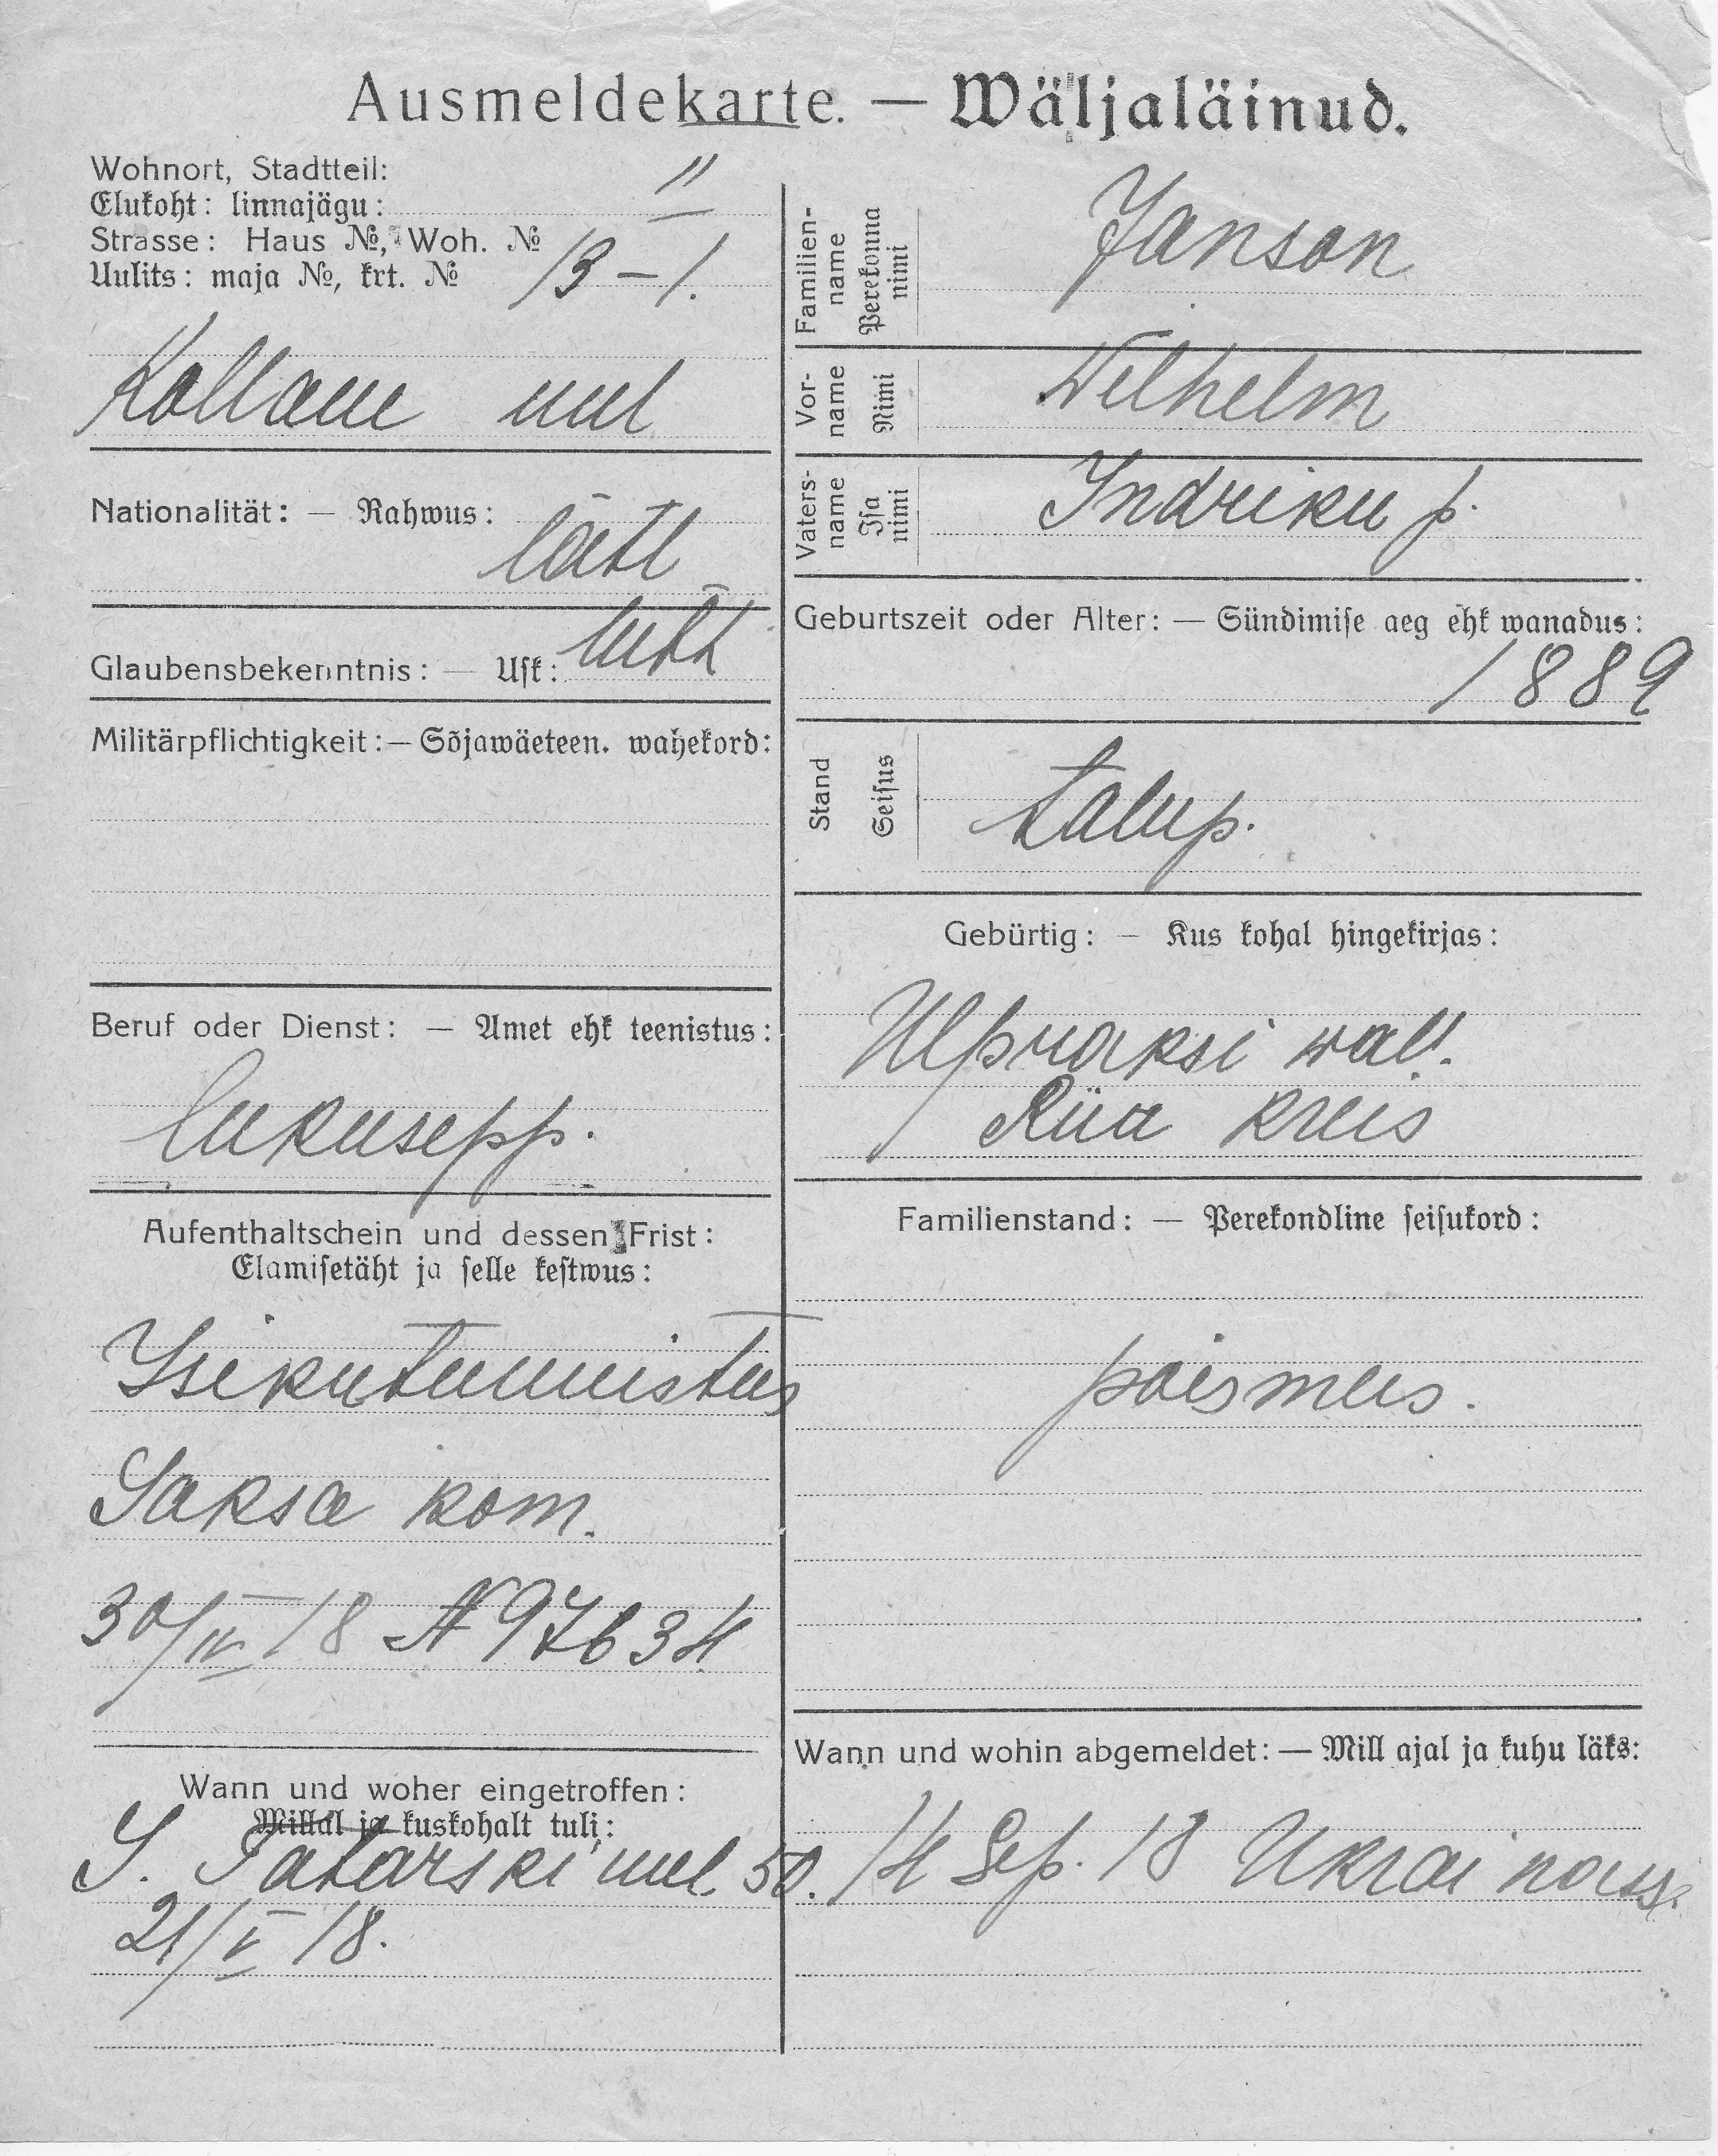 Ausmeldekarte. — Wäljaläinud.
Wohnort, Stadtteil:
Elukoht: linnajägu: II
Strasse: Haus №, Woh. №
Uulits: maja №, krt. № 13 – 1.
Kollane uul
Nationalität: — Rahwus:
lätl
Glaubensbekenntnis: — Usk: luth
Militärpflichtigkeit: — Sõjawäeteen. wahekord:
Beruf oder Dienst: — Amet ehk teenistus:
lukusepp.
Aufenthaltschein und dessen Frist:
Elamisetäht ja selle kestwus:
Isikutunnistus
Saksa kom.
30/IV 18 N 97634
Wann und woher eingetroffen:
Millal ja kuskohalt tuli:
S. Tatarski uul. 50.
21/V 18.
Familien-name Perekonna nimi
Janson
Vor-name Nimi
Wilhelm
Vaters-name Isa nimi
Indriku p.
Geburtszeit oder Alter: — Sündimise aeg ehk wanadus:
1889
Stand Seisus
talup.
Gebürtig: — Kus kohal hingekirjas:
wall.
Riia kreis
Familienstand: — Perekondline seisukord:
poismees.
Wann und wohin abgemeldet: — Mill ajal ja kuhu läks:
14 Sep. 18 Ukrainasse